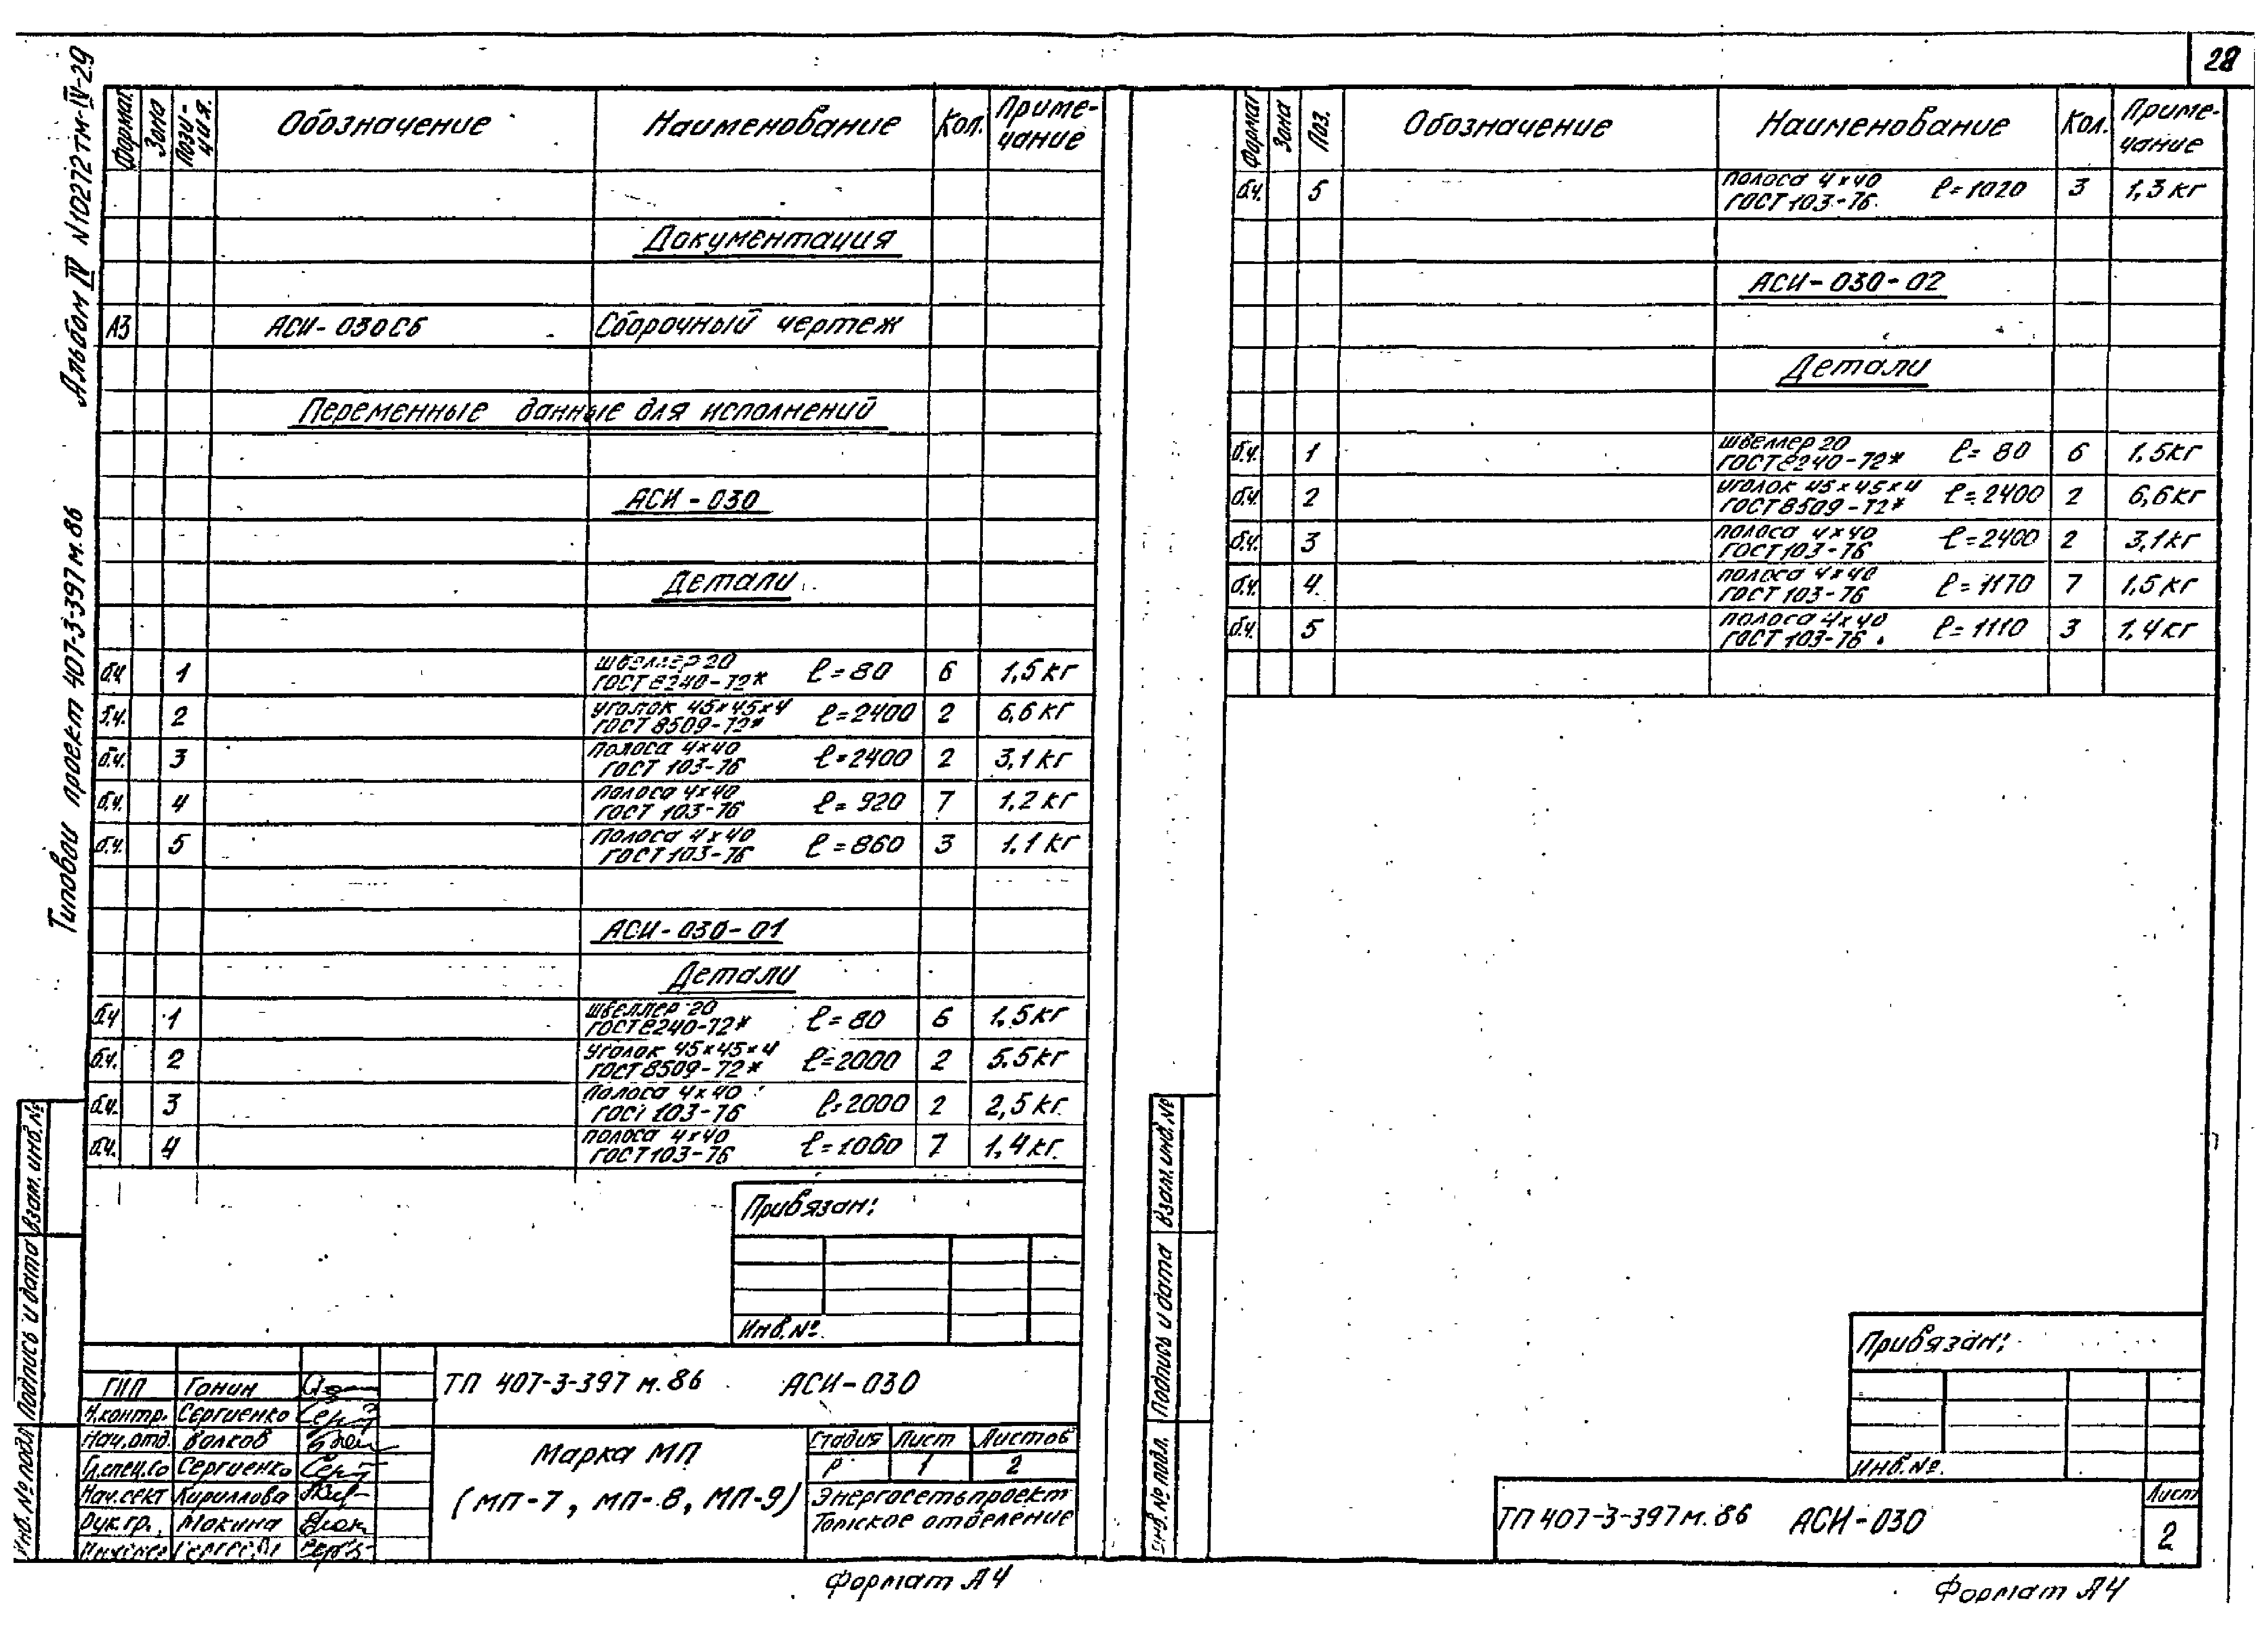 28
Альбом IV N10272тм-IV-29
Типовой проект 407-3-397м.86
Формат Зона Пози-ция. Обозначение Наименование Кол. Приме-чание
Документация
А3 АСИ-030СБ Сборочный чертеж
Переменные данные для исполнений
АСИ-030
Детали
б.ч. 1 швеллер 20 ГОСТ 8240-72* ℓ=80 6 1,5кг
б.ч. 2 уголок 45×45×4 ГОСТ 8509-72* ℓ=2400 2 6,6кг
б.ч. 3 полоса 4×40 ГОСТ 103-76 ℓ=2400 2 3,1кг
б.ч. 4 полоса 4×40 ГОСТ 103-76 ℓ=920 7 1,2кг
б.ч. 5 полоса 4×40 ГОСТ 103-76 ℓ=860 3 1,1кг
АСИ-030-01
Детали
б.ч 1 швеллер 20 ГОСТ 8240-72* ℓ=80 6 1,5кг
б.ч. 2 уголок 45×45×4 ГОСТ 8509-72* ℓ=2000 2 5.5кг
б.ч. 3 полоса 4×40 ГОСТ 103-76 ℓ=2000 2 2,5кг.
б.ч. 4 полоса 4×40 ГОСТ 103-76 ℓ=1060 7 1,4кг.
Привязан:
Инв.№.
ТП 407-3-397м.86 АСИ-030
ГИП Гонин
Н.контр. Сергиенко
Нач.отд. Волков
Гл.спец.со Сергиенко
Нач.сект Кириллова
Рук.гр. Мокина
Марка МП
(МП-7, МП-8, МП-9)
Стадия Лист Листов
Р 1 2
Энергосетьпроект
Томское отделение
Взам.инв.№
Подпись и дата
Инв.№ подл
Формат А4
Формат Зона Поз. Обозначение Наименование Кол. Приме-чание
б.ч. 5 полоса 4×40 ГОСТ 103-76. ℓ=1020 3 1,3кг
АСИ-030-02
Детали
б.ч. 1 швеллер 20 ГОСТ 8240-72* ℓ=80 6 1,5кг
б.ч. 2 уголок 45×45×4 ГОСТ 8509-72* ℓ=2400 2 6,6кг
б.ч. 3 полоса 4×40 ГОСТ 103-76 ℓ=2400 2 3,1кг
б.ч. 4 полоса 4×40 ГОСТ 103-76 ℓ=1170 7 1,5кг
б.ч. 5 полоса 4×40 ГОСТ 103-76. ℓ=1110 3 1,4кг
Взам.инв.№
Подпись и дата
Инв.№ подл.
Привязан:
Инв.№.
ТП 407-3-397м.86 АСИ-030
Лист
2
Формат А4